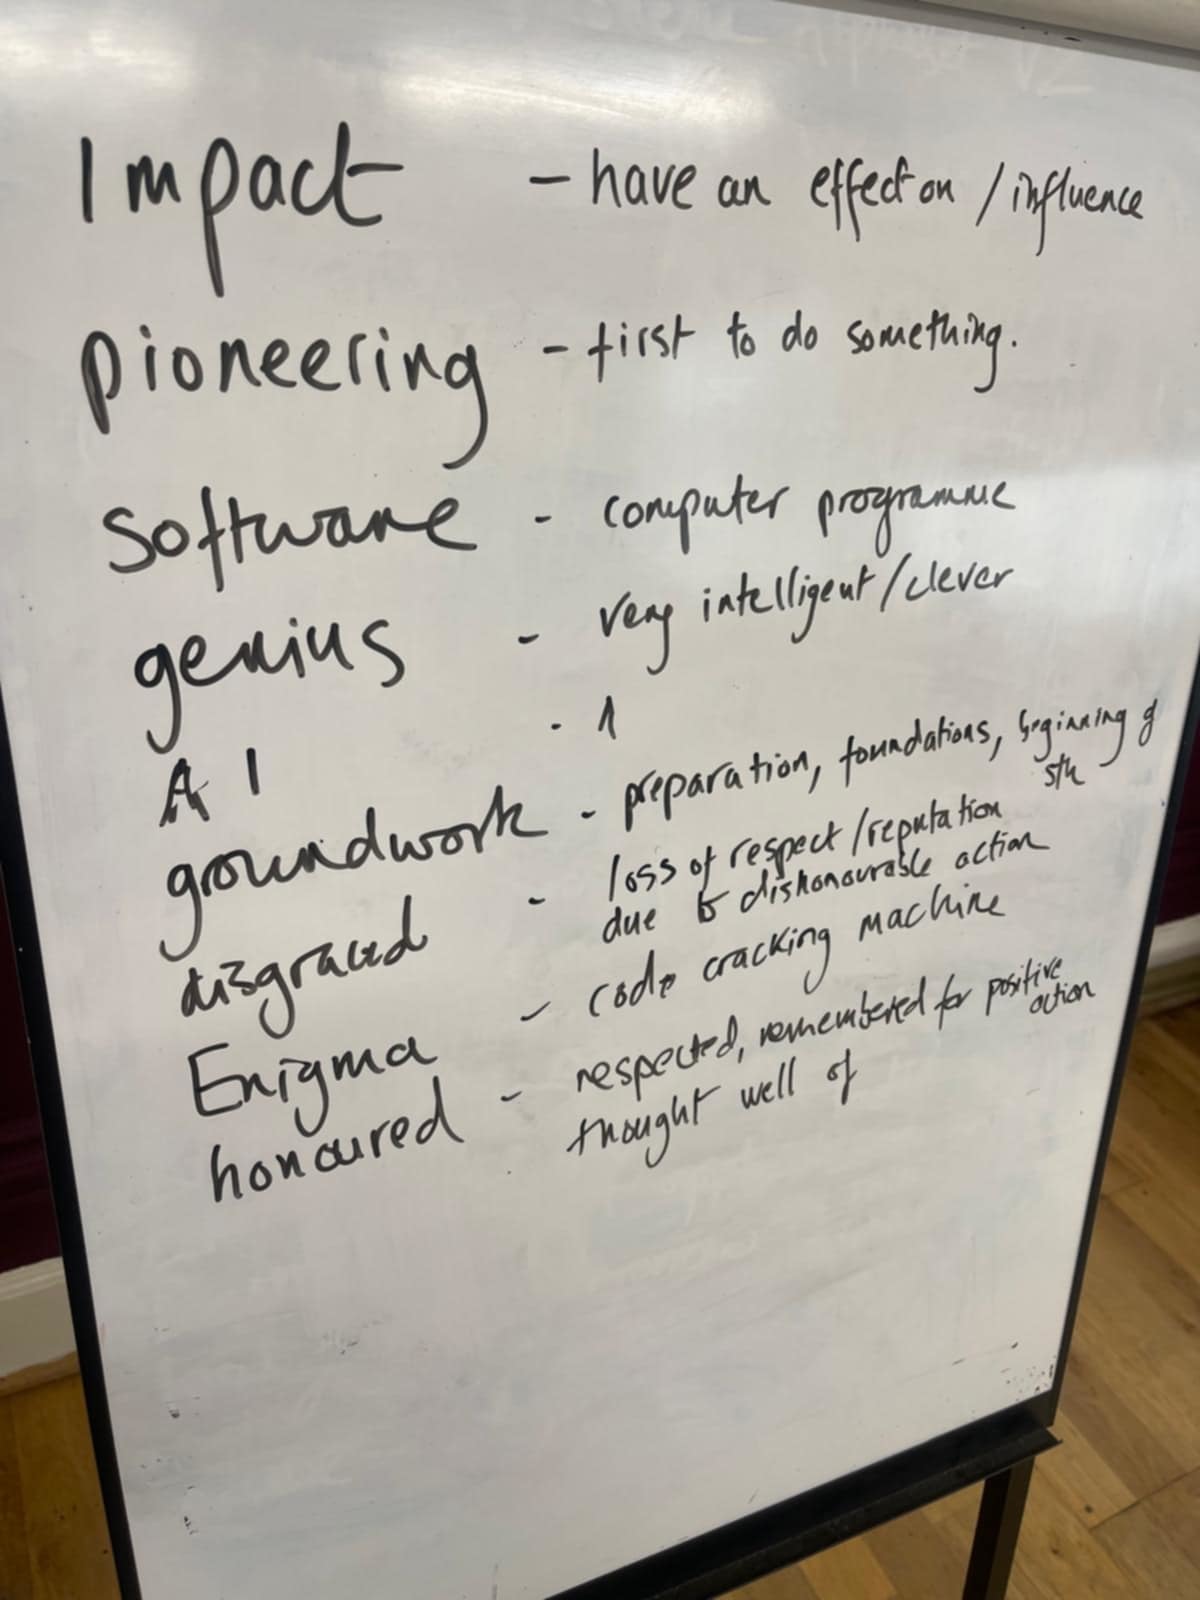 Impact - have an effect on / influence
pioneering - first to do something.
Software - computer programme
genius - very intelligent/clever
AI -
groundwork - preparation, foundations, beginning of
sth
disgraced - loss of respect/reputation
due to dishonourable action
Enigma - code cracking machine
honoured - respected, remembered for positive
action
thought well of